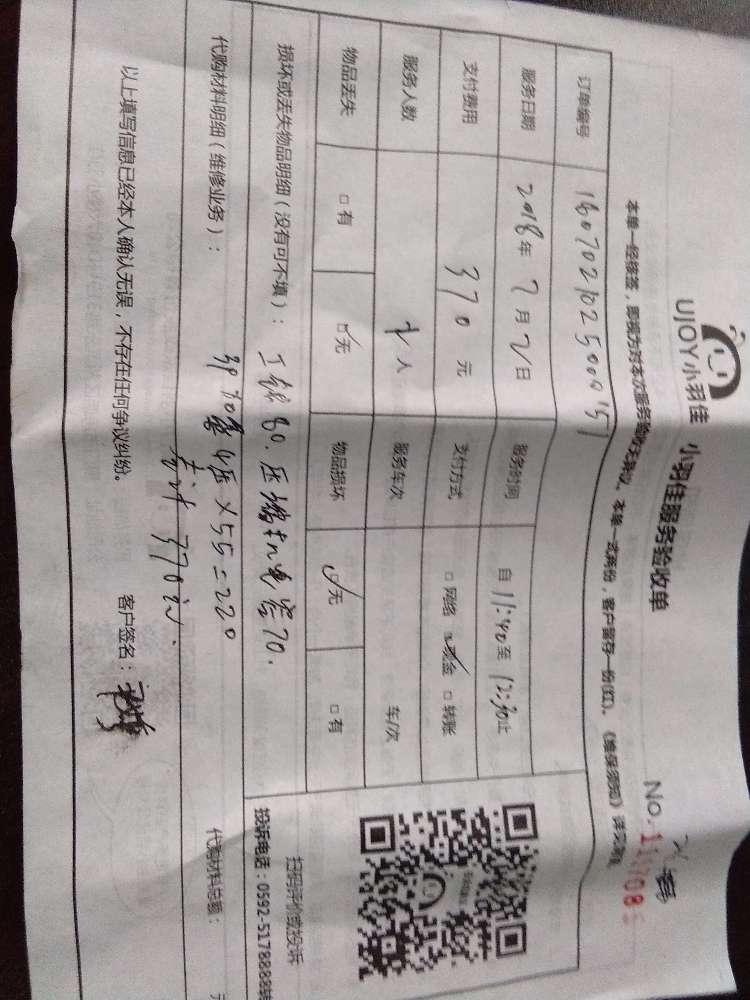 UJOY小羽佳 小羽佳服务验收单
No.
本单一经接签，即视为对本次服务验收无异议。本单一式两份，客户留存一份(红)。
订单编号
服务日期 2018年7月2日 服务时间 自11:40至12:30止
支付费用 370元 支付方式 □网络 ☑现金 □转账
服务人数 人 服务车次 车/次
物品丢失 □有 ☑无 物品损坏 ☑无 □有
扫码评价或投诉
投诉电话：0592-5178888转
损坏或丢失物品明细（没有可不填）：工钱80.压缩机电容70.
代购材料明细（维修业务）： ×55=220
共计370元.
代购材料总额： 元
以上填写信息已经本人确认无误，不存在任何争议纠纷。 客户签名：